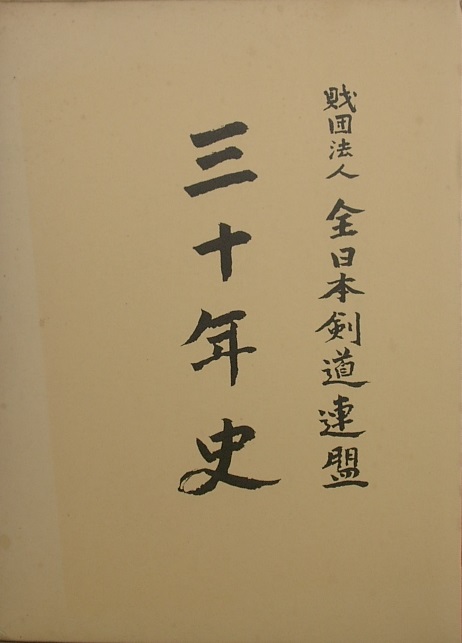 財団法人 全日本剣道連盟
三十年史